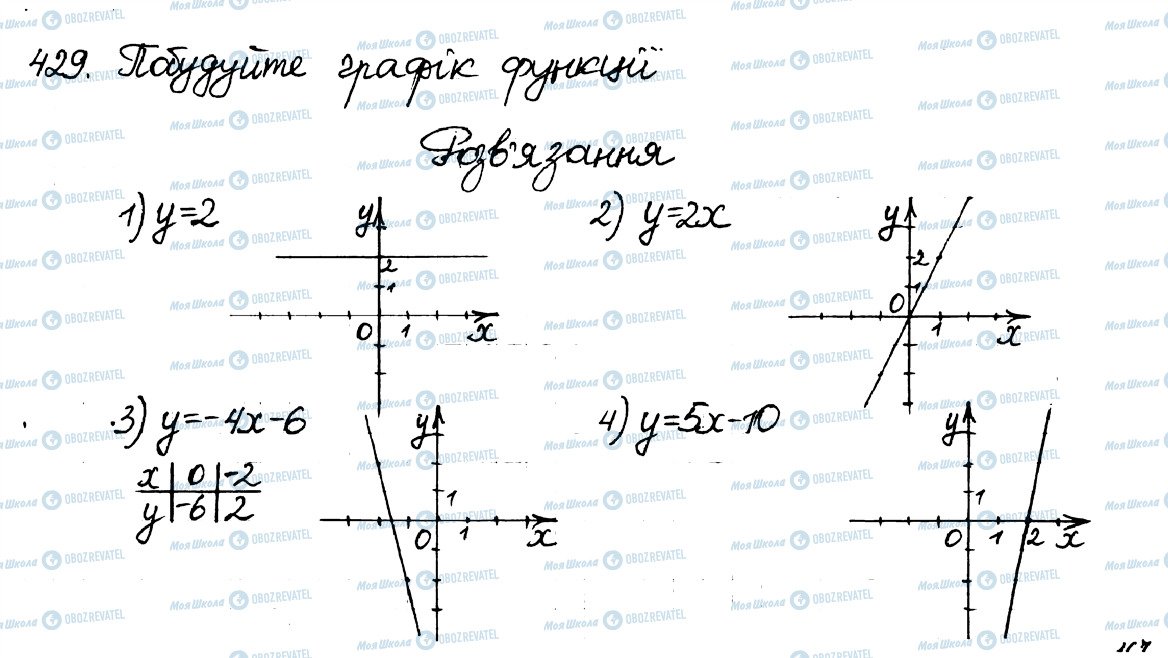 429. Побудуйте графік функції
Розв'язання
1) y=2
y
2
1
0 1 x
2) y=2x
y
2
1
0
1 x
3) y=-4x-6
x | 0 | -2
y | -6 | 2
y
1
0 1 x
4) y=5x-10
y
1
0 1 2 x
МояШкола OBOZREVATEL